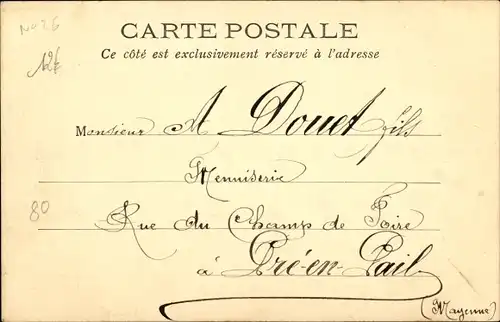 No 26
12f
CARTE POSTALE
Ce côté est exclusivement réservé à l'adresse
Monsieur A Douet fils
Menuiserie
80
Rue du Champ de Foire
à Pré-en-Pail
(Mayenne)